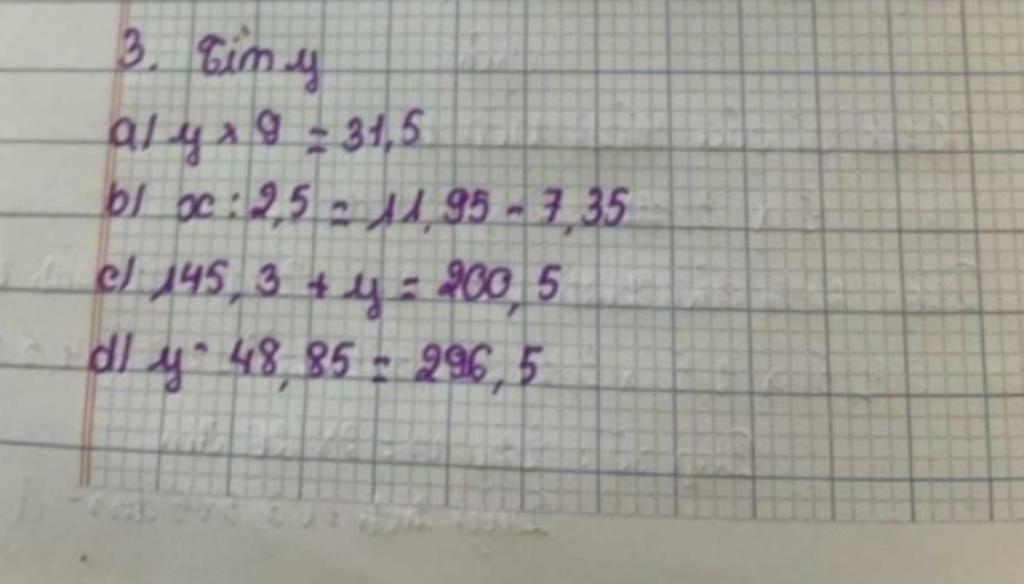 3. Tìm y
a) y x 9 = 31,5
b) x : 2,5 = 11,95 - 7,35
c) 145,3 + y = 200,5
d) y - 48,85 = 296,5